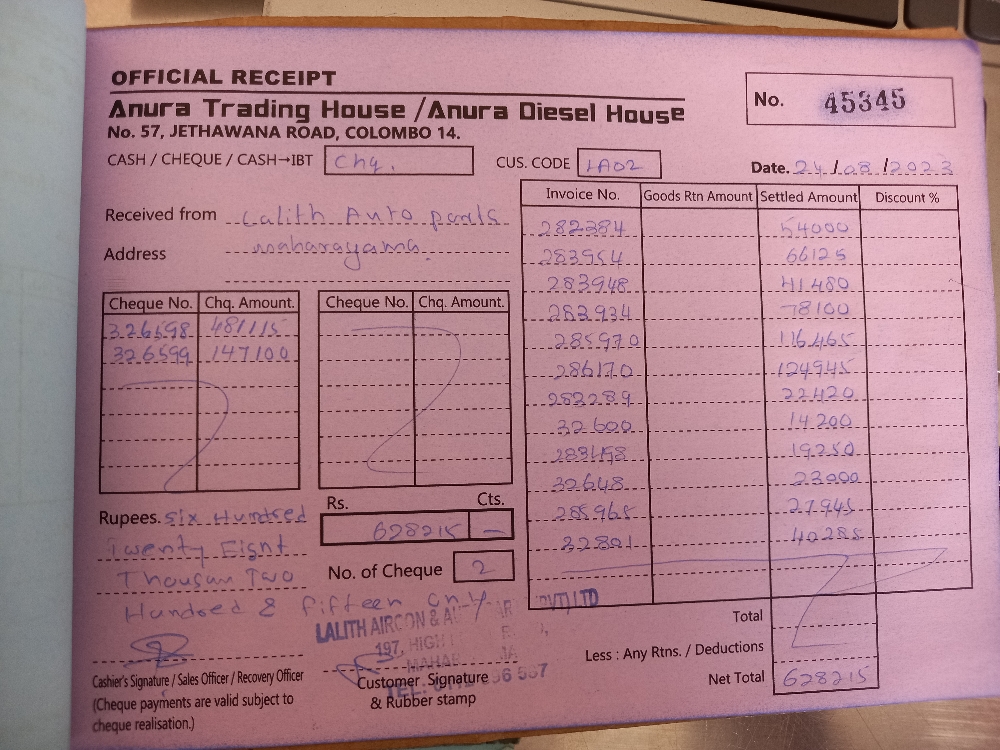 OFFICIAL RECEIPT
Anura Trading House /Anura Diesel House
No. 57, JETHAWANA ROAD, COLOMBO 14.
No. 45345
CASH / CHEQUE / CASH→IBT Chq.
CUS. CODE LA02
Date. 24/08/2023
Received from Lalith Auto parts
Address maharagama.
Cheque No. Chq. Amount.
326598 481115
326599 147100
Cheque No. Chq. Amount.
Invoice No. Goods Rtn Amount Settled Amount Discount %
282384 54000
283954 66125
283948 41480
283934 78100
285970 116465
286170 124945
282289 22420
32600 14200
283498 19250
32648 23000
285965 27945
32801 40285
Rupees. Six Hundred
Twenty Eight
Thousan Two
Hundred & fifteen only
Rs. Cts.
628215 —
No. of Cheque 2
Total
Less : Any Rtns. / Deductions
Net Total 628215
LALITH AIRCON & (PVT) LTD
197, HIGH
Cashier's Signature / Sales Officer / Recovery Officer
(Cheque payments are valid subject to
cheque realisation.)
Customer Signature
& Rubber stamp